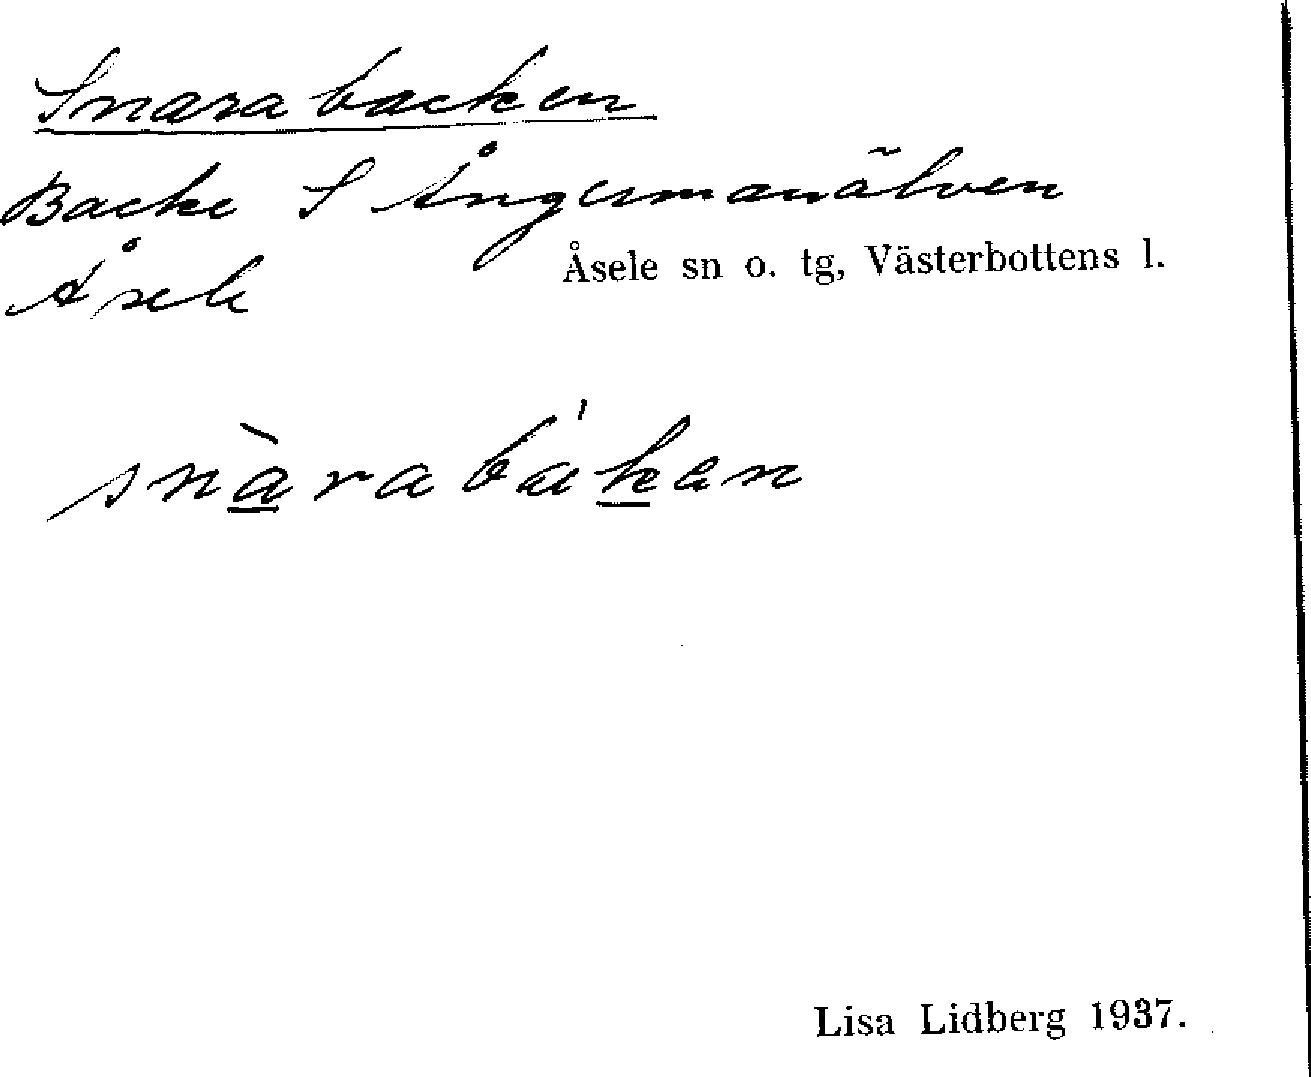 Snarabacken
Backe S Ångermanälven
Åsele
Åsele sn o. tg, Västerbottens l.
snàrabákan
Lisa Lidberg 1937.